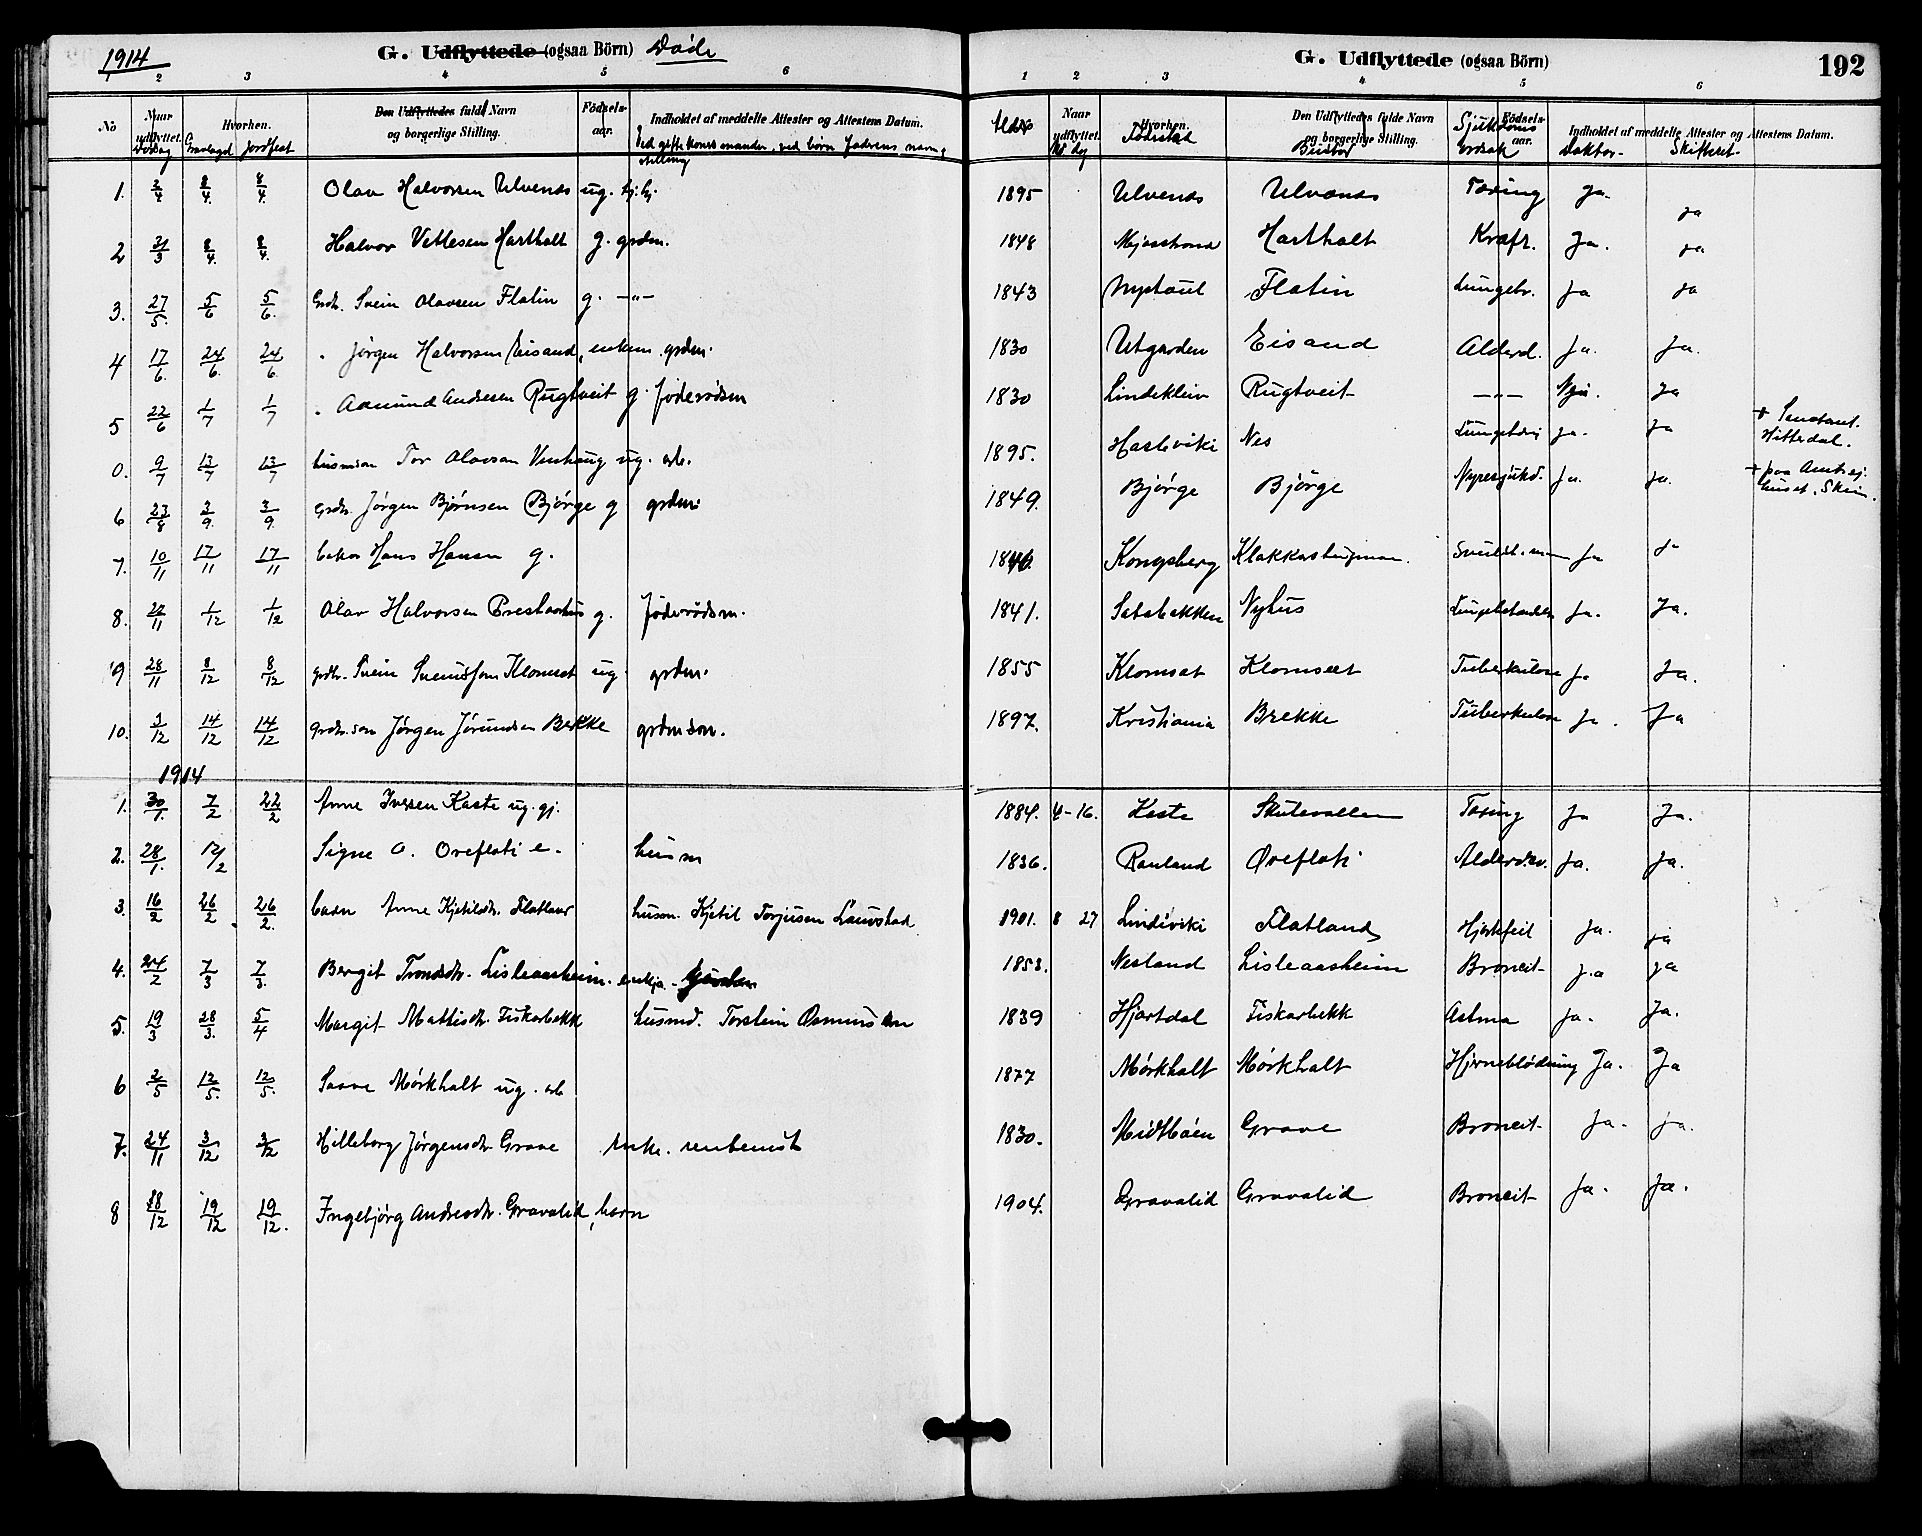 1914 G. Udflyttede (ogsaa Börn) Döde
1 2 3 4 5 6
No Naar udflyttet. Hvorhen. Den Udflyttedes fulde Navn og borgerlige Stilling. Födsels-aar. Indholdet af meddelte Attester og Attestens Datum.
Dødsdag Gravlagd Jordfest Ved gifte koner manden, ved børn faderens navn, stilling
1. 2/4 8/4. 8/4. Olav Halvorsen Ulvenes ug.
2 31/3 8/4. 8/4. Halvor Vetlesen Harthalt g. grdm.
3. 27/5. 5/6 5/6. Grdb. Svein Olavsen Flatin g. -"-
4 17/6. 24/6. 24/6. " Jørgen Halvorsen Eisand, enkem. grdm.
5 22/6 1/7 1/7 " Aamund Andresen Rugtveit g. føderødsm
0. 9/7 13/7 13/7 husmson Tor Olavsen ug. arb.
6 23/8 3/9. 3/9. Grdb. Jørgen Bjørnsen Bjørge g grdm.
7. 10/11 17/11 17/11 Hans Hansen g.
8. 1/12 1/12 Olav Halvorsen g. føderødsm.
9 28/11 8/12 8/12 grdb. Svein Klomset ug. grdm.
10. 3/12 14/12 14/12 grdb.son Jørgen Jørundsen Bekke grdmson.
1914
1. 30/1. 7/2 22/2 Anne Iversen Kaste ug. gj.
2. 28/1. 12/2 Signe O. Orefloti e. husm
3. 16/2 26/2 26/2. barn Anne Kjetilsdr. Flatland husm. Kjetil Torjusen Lauvstad
4. 24/2 7/3 7/3. Bergit Trondsdr. Lisleaasheim. enkja.
5. 19/3 28/3. 5/4 Margit Mattisdr. Fiskarbekk husmd. Torstein Osmundsen
6 2/5 12/5. 12/5. Saave Mørkhalt ug. arb
7. 24/11 3/12 3/12 Hilleborg Jørgensdr. Grave enke. rentenist
8 18/12 19/12 19/12. Ingebjørg Andresdr. Gravalid, barn
G. Udflyttede (ogsaa Börn) 192
1 2 3 4 5 6
Alder Naar udflyttet. Hvorhen. Den Udflyttedes fulde Navn og borgerlige Stilling. Födsels-aar. Indholdet af meddelte Attester og Attestens Datum.
Fødestad Bustad Sjukdoms orsak Doktor. Skifteret.
1895 Ulvenes Ulvenes Tæring ja. ja
1848 Mjøsstrond Harthalt Kræft. Ja. ja
1843 Nystaul Flatin Lungebr. ja ja
1830 Utgarden Eisand Alderd. ja. ja.
1830 Lindekleiv Rugtveit -"- Nei. ja
1895. Hasleviki Nes ja. ja + Hitterdal.
1849. Bjørge Bjørge Nyresjukd. ja. ja. + paa Amtssj. huset. Skien.
1846. Kongsberg Klakkasteigmoen. ja ja
1841. Satebakken Nyhus Ja. Ja.
1855 Klomset Klomset Tuberkulose ja Ja.
1897. Kristiania Brekke Tuberkulose Ja. Ja
1884. 4-16. Kaste Skutevallen Tæring Ja Ja.
1836. Rauland Ørefloti Alderd.sv. Ja. Ja.
1901. 8 27 Lindeviki Flatland Hjertefeil ja. ja
1853. Nesland Lisleaasheim Broncit ja ja
1839 Hjartdal Fiskarbekk Astma ja. Ja.
1877 Mørkhalt Mørkhalt Hjerneblødning Ja. Ja
1830. Midtbøen Grave Broncit Ja. ja.
1904. Gravalid Gravalid Broncit Ja. Ja.